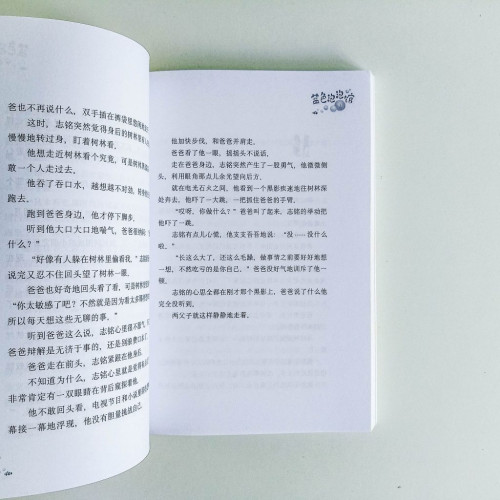 爸也不再说什么，双手插在裤袋里悠闲地
这时，志铭突然觉得身后的树林
慢慢地转过身，盯着树林看。
他想走近树林看个究竟，可是
敢一个人走过去。
他吞了吞口水，越想越不对劲，转
跑去。
跑到爸爸身边，他才停下脚步。
听到他大口大口地喘气，爸爸
什么？”
“好像有人躲在树林里偷看我。”志铭
说完又忍不住回头望了树林一眼。
爸爸也好奇地回头看了看，可是
“你太敏感了吧？不然就是因为看太多
所以每天想这些无聊的事。”
听到爸爸这么说，志铭心里很不服气，
爸爸辩解是无济于事的，还是别浪费口水了。
爸爸走在前头，志铭紧跟在他身后。
不知道为什么，志铭心里就是觉得
非常肯定有一双眼睛在背后窥探着他。
他不敢回头看，电视节目和小说里
幕接一幕地浮现，他没有胆量挑战自己。
蓝色泡泡馆
他加快步伐，和爸爸并肩走。
爸爸看了他一眼，摇摇头不说话。
走在爸爸身边，志铭突然产生了一股勇气，他微微侧
头，利用眼角那儿余光望向后方。
就在电光石火之间，他看到一个黑影疾速地往树林深
处奔去，他吓了一跳，一把抓住爸爸的手臂。
“哎呀，你做什么？”爸爸叫了起来，志铭的举动把
他吓了一跳。
志铭有点儿心慌，他支支吾吾地说：“没……没什么
啦。”
“长这么大了，还这么毛躁，做事情之前要好好地想
一想，不然吃亏的是你自己。”爸爸没好气地训斥了他一
顿。
志铭的心思全都在刚才那个黑影上，爸爸说了什么他
完全没听到。
两父子就这样静静地走着。